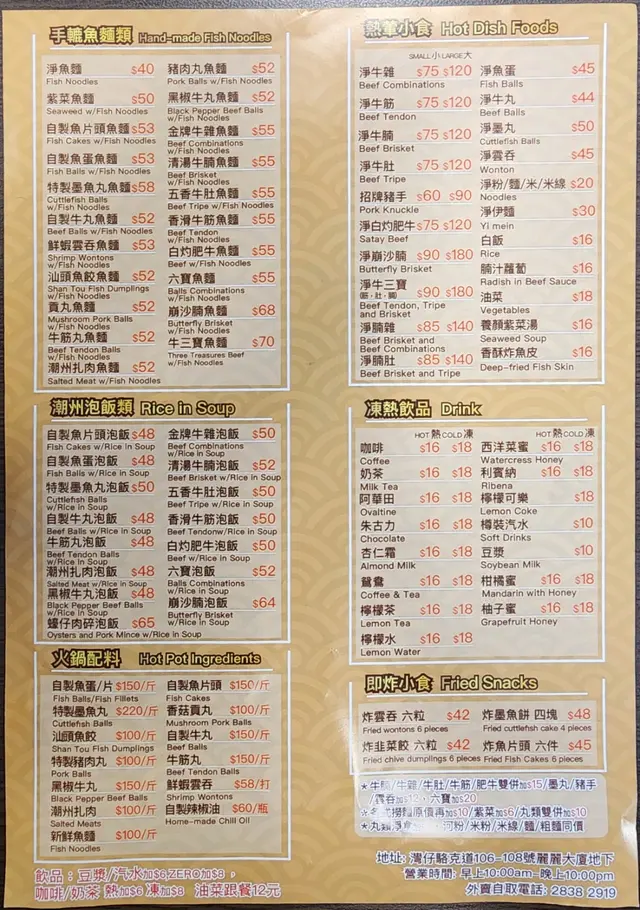 手轆魚麵類 Hand-made Fish Noodles
淨魚麵 $40
Fish Noodles
紫菜魚麵 $50
Seaweed w/Fish Noodles
自製魚片頭魚麵 $53
Fish Cakes w/Fish Noodles
自製魚蛋魚麵 $53
Fish Balls w/Fish Noodles
特製墨魚丸魚麵 $58
Cuttlefish Balls
w/Fish Noodles
自製牛丸魚麵 $52
Beef Balls w/Fish Noodles
鮮蝦雲吞魚麵 $53
Shrimp Wontons
w/Fish Noodles
汕頭魚餃魚麵 $52
Shan Tou Fish Dumplings
w/Fish Noodles
貢丸魚麵 $52
Mushroom Pork Balls
w/Fish Noodles
牛筋丸魚麵 $52
Beef Tendon Balls
w/Fish Noodles
潮州扎肉魚麵 $52
Salted Meat w/Fish Noodles
豬肉丸魚麵 $52
Pork Balls w/Fish Noodles
黑椒牛丸魚麵 $52
Black Pepper Beef Balls
w/Fish Noodles
金牌牛雜魚麵 $55
Beef Combinations
w/Fish Noodles
清湯牛腩魚麵 $55
Beef Brisket
w/Fish Noodles
五香牛肚魚麵 $55
Beef Tripe w/Fish Noodles
香滑牛筋魚麵 $55
Beef Tendon
w/Fish Noodles
白灼肥牛魚麵 $55
Beef w/Fish Noodles
六寶魚麵 $55
Balls Combinations
w/Fish Noodles
崩沙腩魚麵 $68
Butterfly Brisket
w/Fish Noodles
牛三寶魚麵 $70
Three Treasures Beef
w/Fish Noodles
潮州泡飯類 Rice in Soup
自製魚片頭泡飯 $48
Fish Cakes w/Rice in Soup
自製魚蛋泡飯 $48
Fish Balls w/Rice in Soup
特製墨魚丸泡飯 $50
Cuttlefish Balls
w/Rice in Soup
自製牛丸泡飯 $48
Beef Balls w/Rice in Soup
牛筋丸泡飯 $48
Beef Tendon Balls
w/Rice in Soup
潮州扎肉泡飯 $48
Salted Meat w/Rice in Soup
黑椒牛丸泡飯 $48
Black Pepper Beef Balls
w/Rice in Soup
蠔仔肉碎泡飯 $65
Oysters and Pork Mince w/Rice in Soup
金牌牛雜泡飯 $50
Beef Combinations
w/Rice in Soup
清湯牛腩泡飯 $52
Beef Brisket w/Rice in Soup
五香牛肚泡飯 $50
Beef Tripe w/Rice in Soup
香滑牛筋泡飯 $50
Beef Tendonw/Rice in Soup
白灼肥牛泡飯 $50
Beef w/Rice in Soup
六寶泡飯 $52
Balls Combinations
w/Rice in Soup
崩沙腩泡飯 $64
Butterfly Brisket
w/Rice in Soup
火鍋配料 Hot Pot Ingredients
自製魚蛋/片 $150/斤
Fish Balls/Fish Fillets
特製墨魚丸 $220/斤
Cuttlefish Balls
汕頭魚餃 $100/斤
Shan Tou Fish Dumplings
特製豬肉丸 $100/斤
Pork Balls
黑椒牛丸 $150/斤
Black Pepper Beef Balls
潮州扎肉 $100/斤
Salted Meats
新鮮魚麵 $100/斤
Fish Noodles
自製魚片頭 $150/斤
Fish Cakes
香菇貢丸 $100/斤
Mushroom Pork Balls
自製牛丸 $150/斤
Beef Balls
牛筋丸 $150/斤
Beef Tendon Balls
鮮蝦雲吞 $58/打
Shrimp Wontons
自製辣椒油 $60/瓶
Home-made Chili Oil
飲品：豆漿/汽水加$6 ZERO加$8，
咖啡/奶茶 熱加$6 凍加$8 油菜跟餐12元
熱葷小食 Hot Dish Foods
SMALL小 LARGE大
淨牛雜 $75 $120
Beef Combinations
淨牛筋 $75 $120
Beef Tendon
淨牛腩 $75 $120
Beef Brisket
淨牛肚 $75 $120
Beef Tripe
招牌豬手 $60 $90
Pork Knuckle
淨白灼肥牛 $75 $120
Satay Beef
淨崩沙腩 $90 $180
Butterfly Brisket
淨牛三寶 $90 $180
(筋、肚、腩)
Beef Tendon, Tripe
and Brisket
淨腩雜 $85 $140
Beef Brisket and
Beef Combinations
淨腩肚 $85 $140
Beef Brisket and Tripe
淨魚蛋 $45
Fish Balls
淨牛丸 $44
Beef Balls
淨墨丸 $50
Cuttlefish Balls
淨雲吞 $45
Wonton
淨粉/麵/米/米線 $20
Noodles
淨伊麵 $30
Yi mein
白飯 $16
Rice
腩汁蘿蔔 $16
Radish in Beef Sauce
油菜 $18
Vegetables
養顏紫菜湯 $16
Seaweed Soup
香酥炸魚皮 $16
Deep-fried Fish Skin
凍熱飲品 Drink
HOT 熱 COLD 凍
咖啡 $16 $18
Coffee
奶茶 $16 $18
Milk Tea
阿華田 $16 $18
Ovaltine
朱古力 $16 $18
Chocolate
杏仁霜 $16 $18
Almond Milk
鴛鴦 $16 $18
Coffee & Tea
檸檬茶 $16 $18
Lemon Tea
檸檬水 $16 $18
Lemon Water
HOT 熱 COLD 凍
西洋菜蜜 $16 $18
Watercress Honey
利賓納 $16 $18
Ribena
檸檬可樂 $18
Lemon Coke
樽裝汽水 $10
Soft Drinks
豆漿 $10
Soybean Milk
柑橘蜜 $16 $18
Mandarin with Honey
柚子蜜 $16 $18
Grapefruit Honey
即炸小食 Fried Snacks
炸雲吞 六粒 $42
Fried wontons 6 pieces
炸韭菜餃 六粒 $42
Fried chive dumplings 6 pieces
炸墨魚餅 四塊 $48
Fried cuttlefish cake 4 pieces
炸魚片頭 六件 $45
Fried Fish Cakes 6 pieces
★牛腩/牛雜/牛肚/牛筋/肥牛雙併加$15/墨丸/豬手
/雲吞加$12，六寶加$20
撈麵原價再加$10/紫菜加$6/丸類雙併加$10
★丸類淨 河粉/米粉/米線/麵/粗麵同價
地址: 灣仔駱克道106-108號麗麗大廈地下
營業時間: 早上10:00am-晚上10:00pm
外賣自取電話: 2838 2919